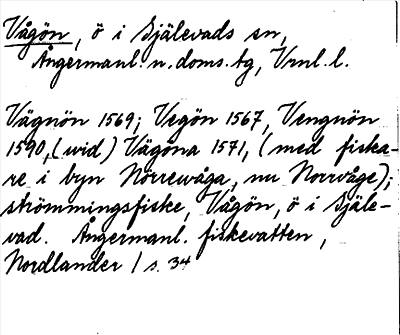 Vågön, ö i Själevads sn,
Ångermanl. n. doms. tg, Vrnl. l.
Vägnön 1569; Vegön 1567, Vengnön
1590, (wid) Vägöna 1571, (med fiska-
re i byn Norrewåga, nu Norrvåge);
strömmingsfiske, Vågön, ö i Själe-
vad. Ångermanl. fiskevatten,
Nordlander 1 s. 34